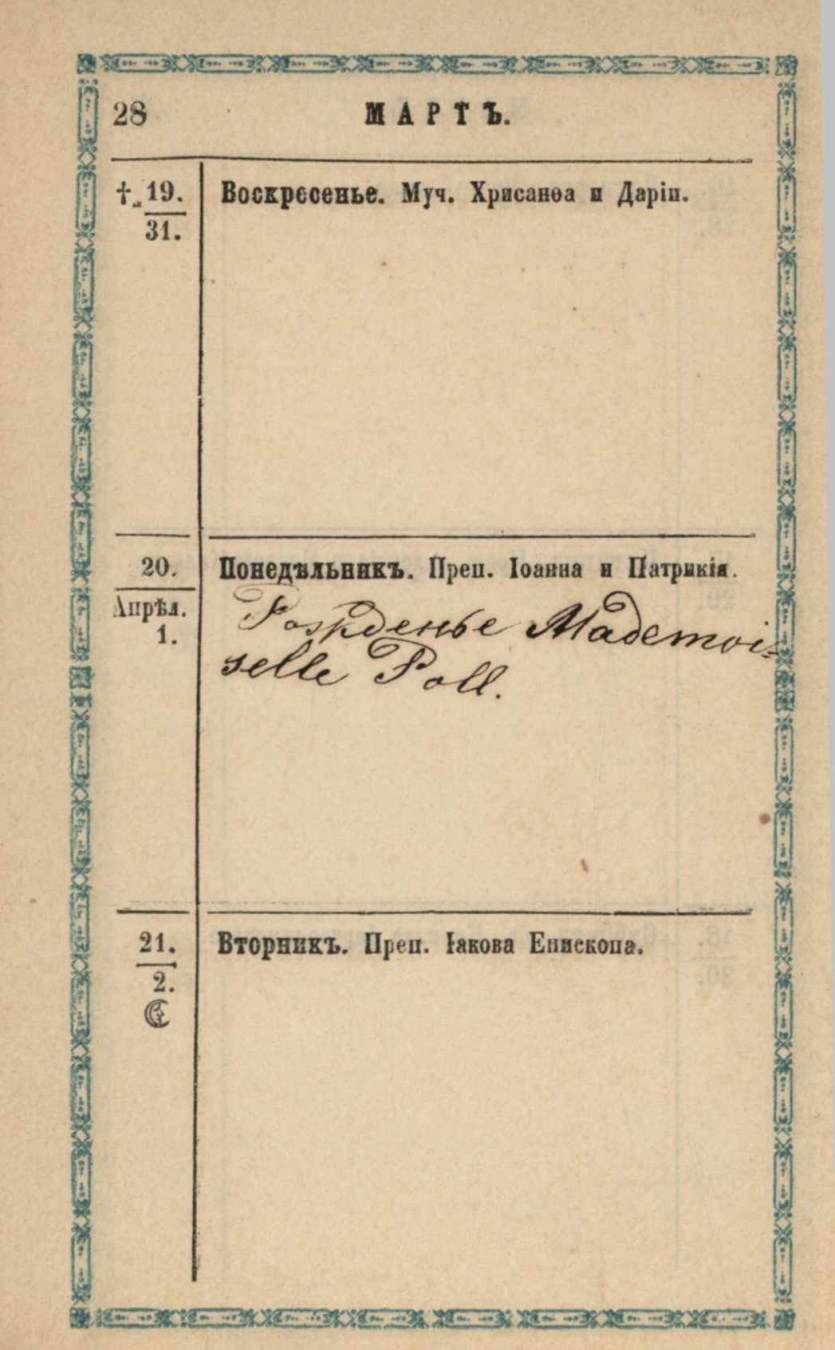 28 МАРТЪ.
† 19. Воскресенье. Муч. Хрисанѳа и Даріи.
31.
20. Понедѣльникъ. Преп. Іоанна и Патрикія.
Апрѣл. Рожденье Mademoi-
1. selle Poll.
21. Вторникъ. Преп. Іакова Епископа.
2.